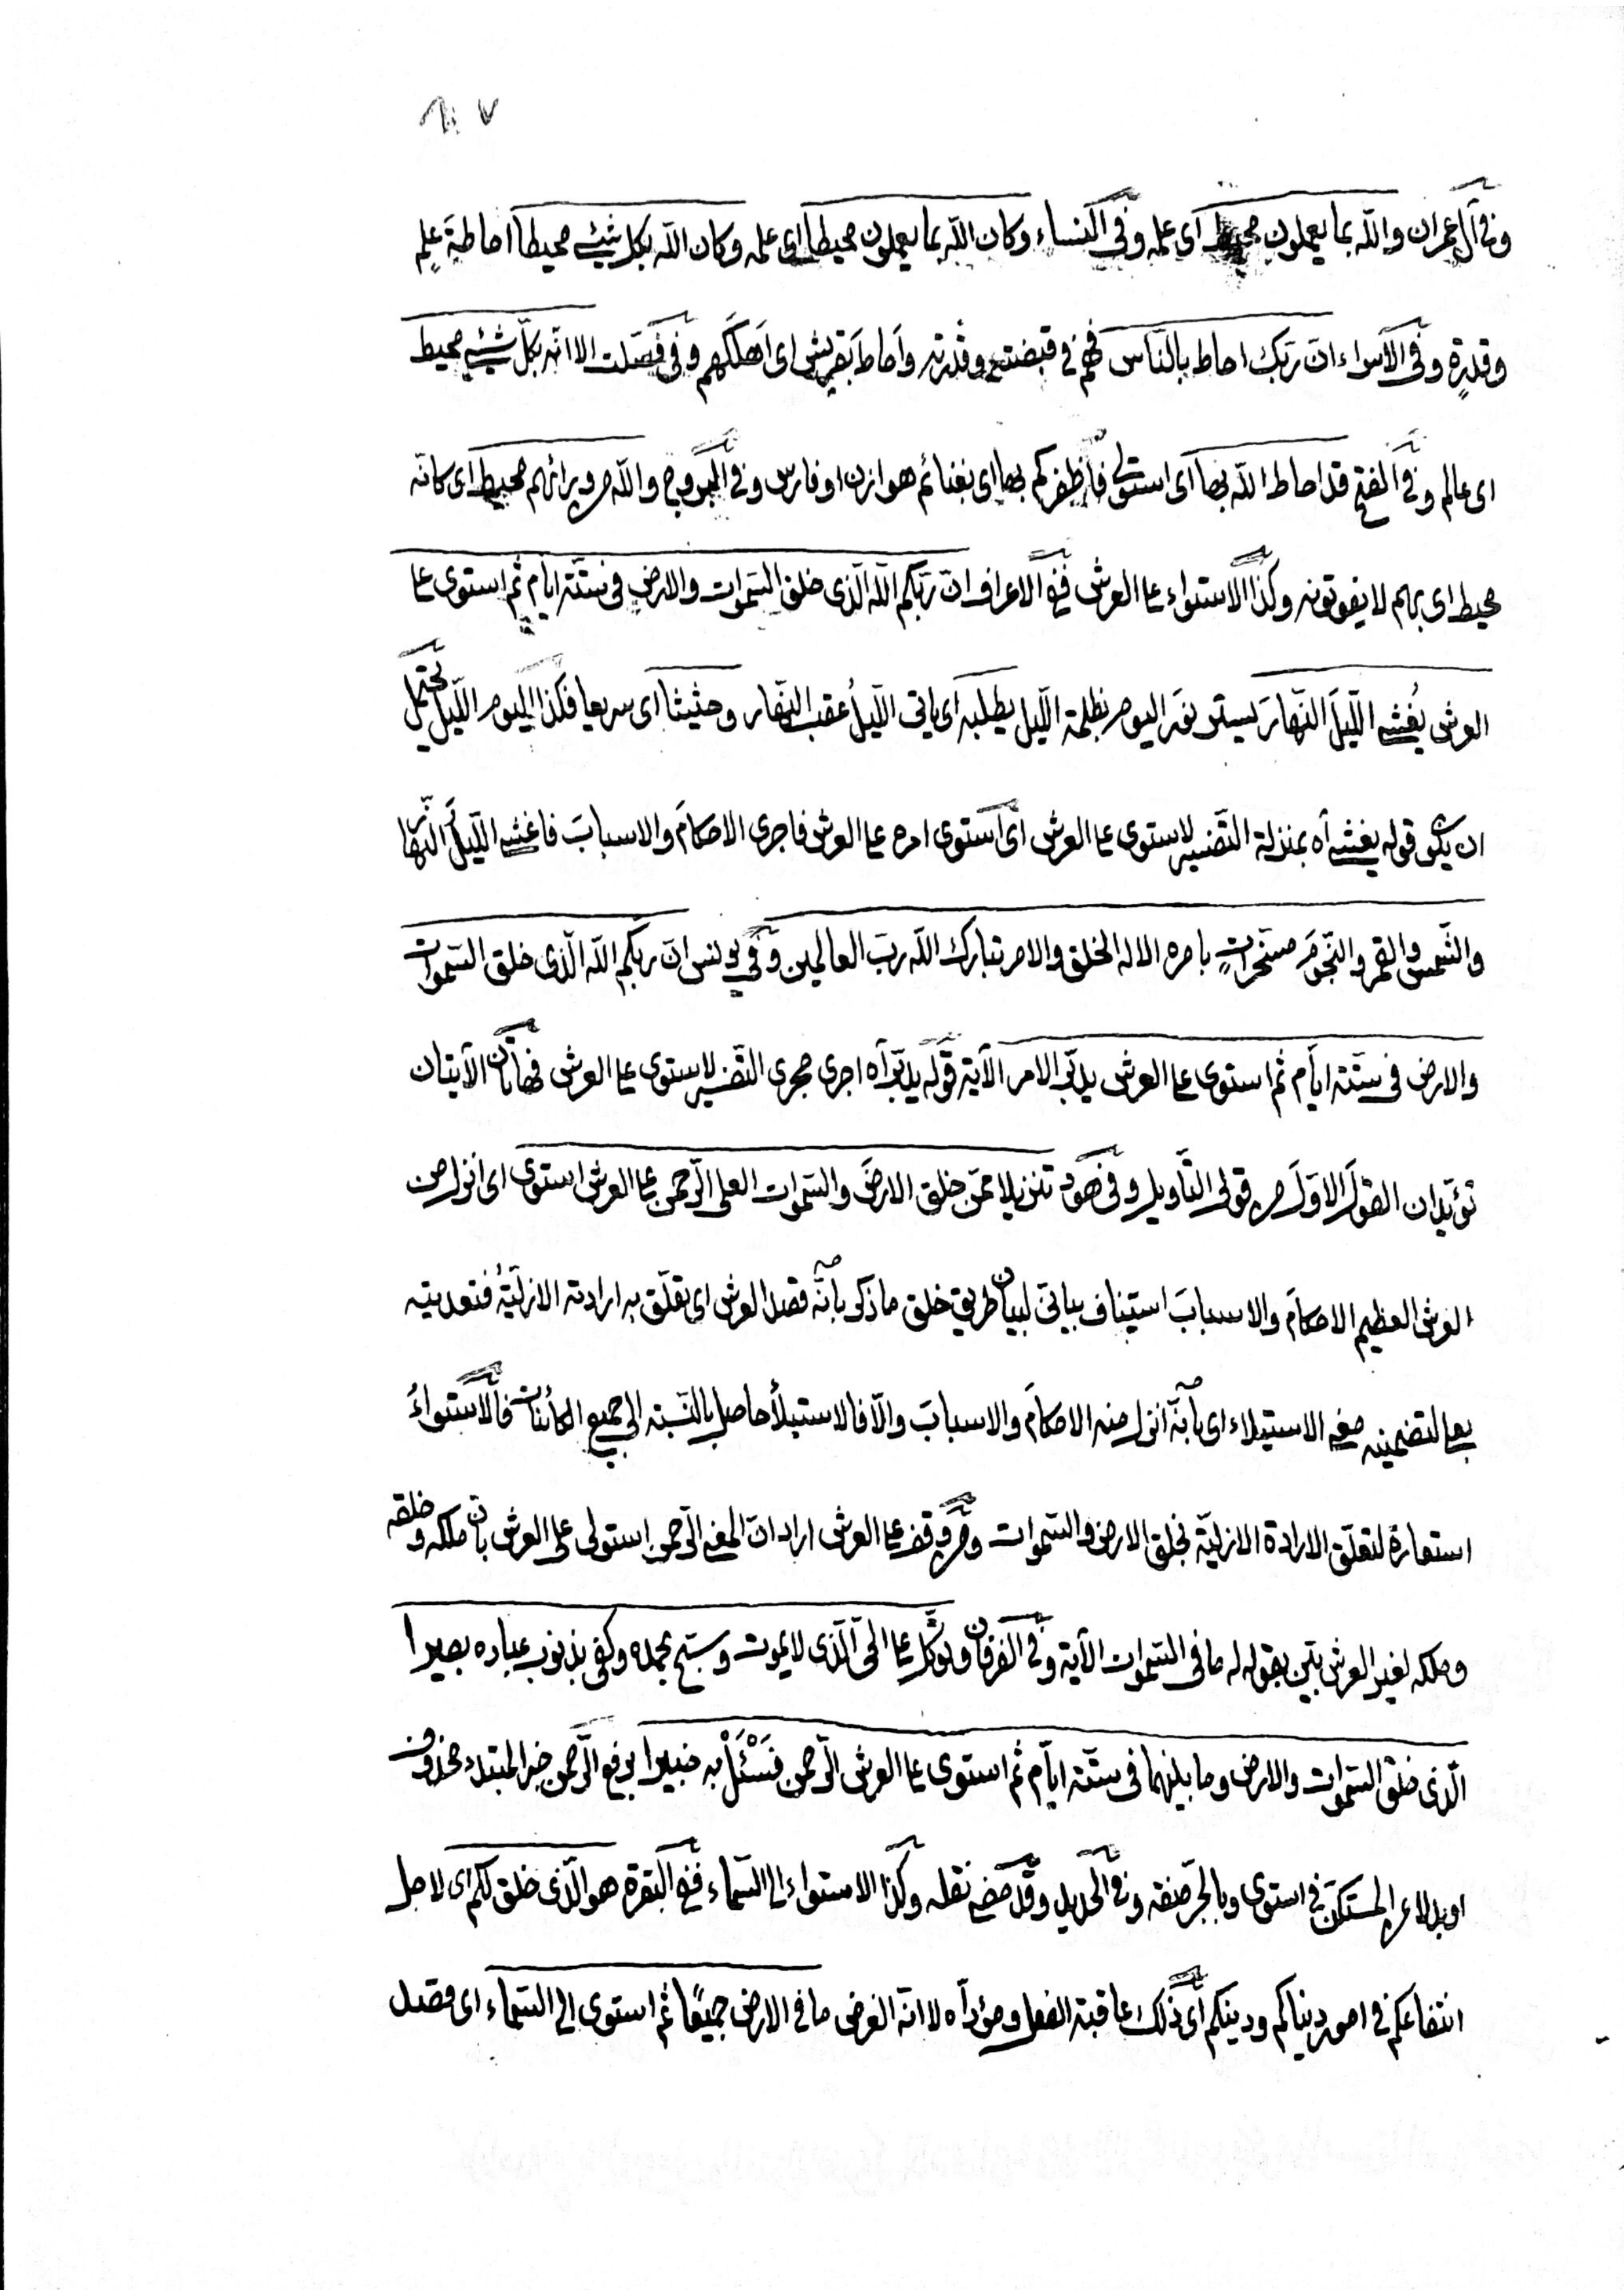 ١٠٧
وفى آل عمران والله بما يعملون محيط اى علمه وفى النساء وكان الله بما يعملون محيطا اى علمه وكان الله بكل شيئ محيطا احاطة علم
وقدرة وفى الاسراء ان ربك احاط بالناس فهم فى قبضته وقدرته واحاط بقريش اى اهلكهم وفى فصلت الا انه بكل شيئ محيط
اى عالم وفى الفتح قد احاط الله بها اى استولى فاظفركم بها اى بغنائم هوازن او فارس وفى البروج والله من ورائهم محيط اى كانه
محيط اى بهم لا يفوتونه وكذا الاستواء على العرش ففى الاعراف ان ربكم الله الذى خلق السموات والارض فى ستة ايام ثم استوى على
العرش يُغشى الليلَ النهارَ يستر نور اليوم بظلمة الليل يطلبه اى ياتى الليلُ عقب النهار وحثيثا اى سريعا فكذا اليوم الليل يحتمل
ان يكون قوله يغشى آه بمنزلة التفسير لاستوى على العرش اى استوى امره على العرش فاجرى الاحكامَ والاسبابَ فاغشى الليلَ النهار
والشمس والقمر والنجومَ مسخراتٍ بامره الا له الخلق والامر تبارك الله رب العالمين وفى يونس ان ربكم الله الذى خلق السموات
والارض فى ستة ايام ثم استوى على العرش يدبّر الامر الآية قوله يدبّر آه اجرى مجرى التفسير لاستوى على العرش فهاتان الآيتان
تؤيدان القولَ الاوّلَ من قولى التأويل وفى هود تنزيلا ممن خلق الارضَ والسموات العلى الرحمن على العرش استوى اى انزل من
العرش العظيم الاحكامَ والاسبابَ استيناف بيانى لبيان طريق خلق ما ذكر بانّه قصد العرش اى تعلّق به ارادته الازليّةُ فتعديته
بعلى لتضمينه معنى الاستيلاء اى بأنّه انزل منه الاحكامَ والاسبابَ والّا فالاستيلأ حاصل بالنسبة الى جميع الكائنات فالاستواءُ
استعارة لتعلّق الارادة الازليّة بخلق الارض والسموات ومن وقف على العرش اراد ان المعنى الرحمن استولى على العرش بأن ملكه وخلقه
وملكه لغير العرش بيّن بقوله له ما فى السموات الآية وفى الفرقان وتوكّل على الحىّ الذى لا يموت وسبّح بحمده وكفى بذنوب عباده بصيرا
الّذى خلق السموات والارض وما بينهما فى ستّة ايّام ثم استوى على العرش الرحمن فَسْئَلْ به خبيرا برفع الرحمن خبر المبتدء محذوف
او بدلا عن المستكنّ فى استوى وبالجرّ صفته وفى الحديد وقد مضى نقله وكذا الاستواء الى السماء ففى البقرة هو الّذى خلق لكم اى لاجل
انتفاعكم فى امور دنياكم ودينكم اى ذلك عاقبة الفعل ومؤداه لا انّه الغرض ما فى الارض جميعًا ثم استوى الى السماء اى قصد